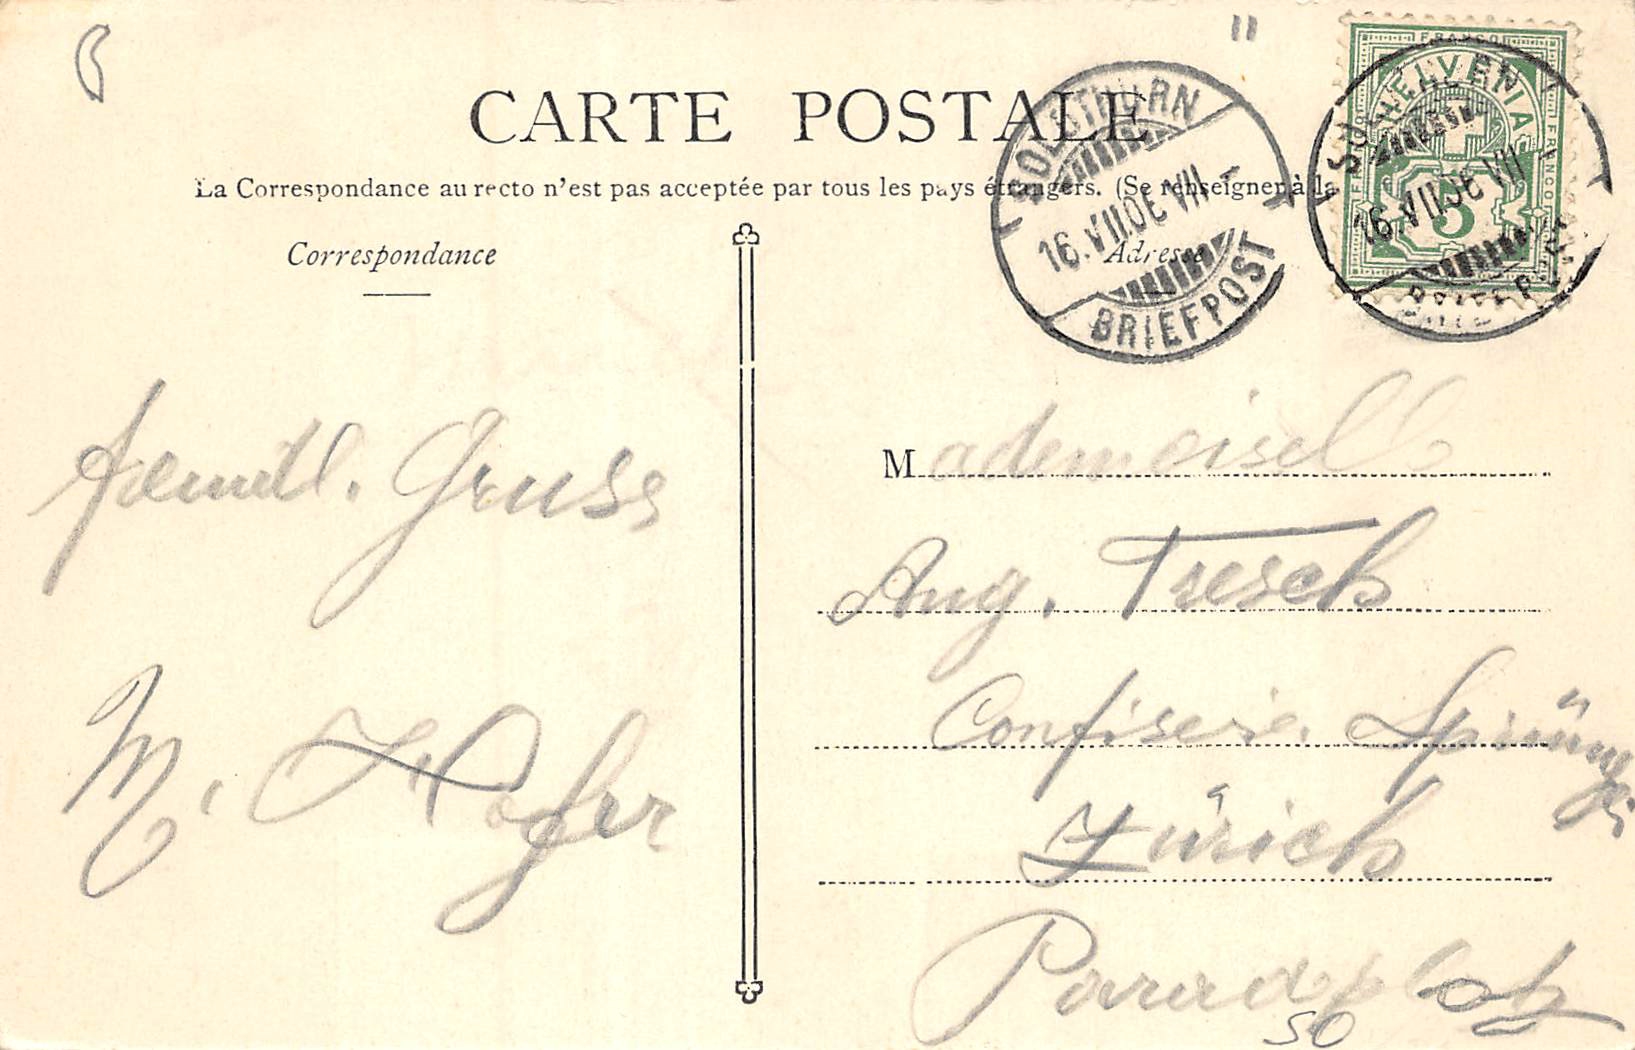 CARTE POSTALE
La Correspondance au recto n'est pas acceptée par tous les pays étrangers. (Se renseigner à la
Correspondance
Adresse
SOLOTHURN
16.VII.06 VII
BRIEFPOST
FRANCO
HELVETIA
5
SOLOTHURN
16.VII.06 VII
BRIEFPOST
Gruss
M.
Mademoiselle
Aug. Tresch
Confiserie. Sprüngli
Zürich
Paradeplatz
SO